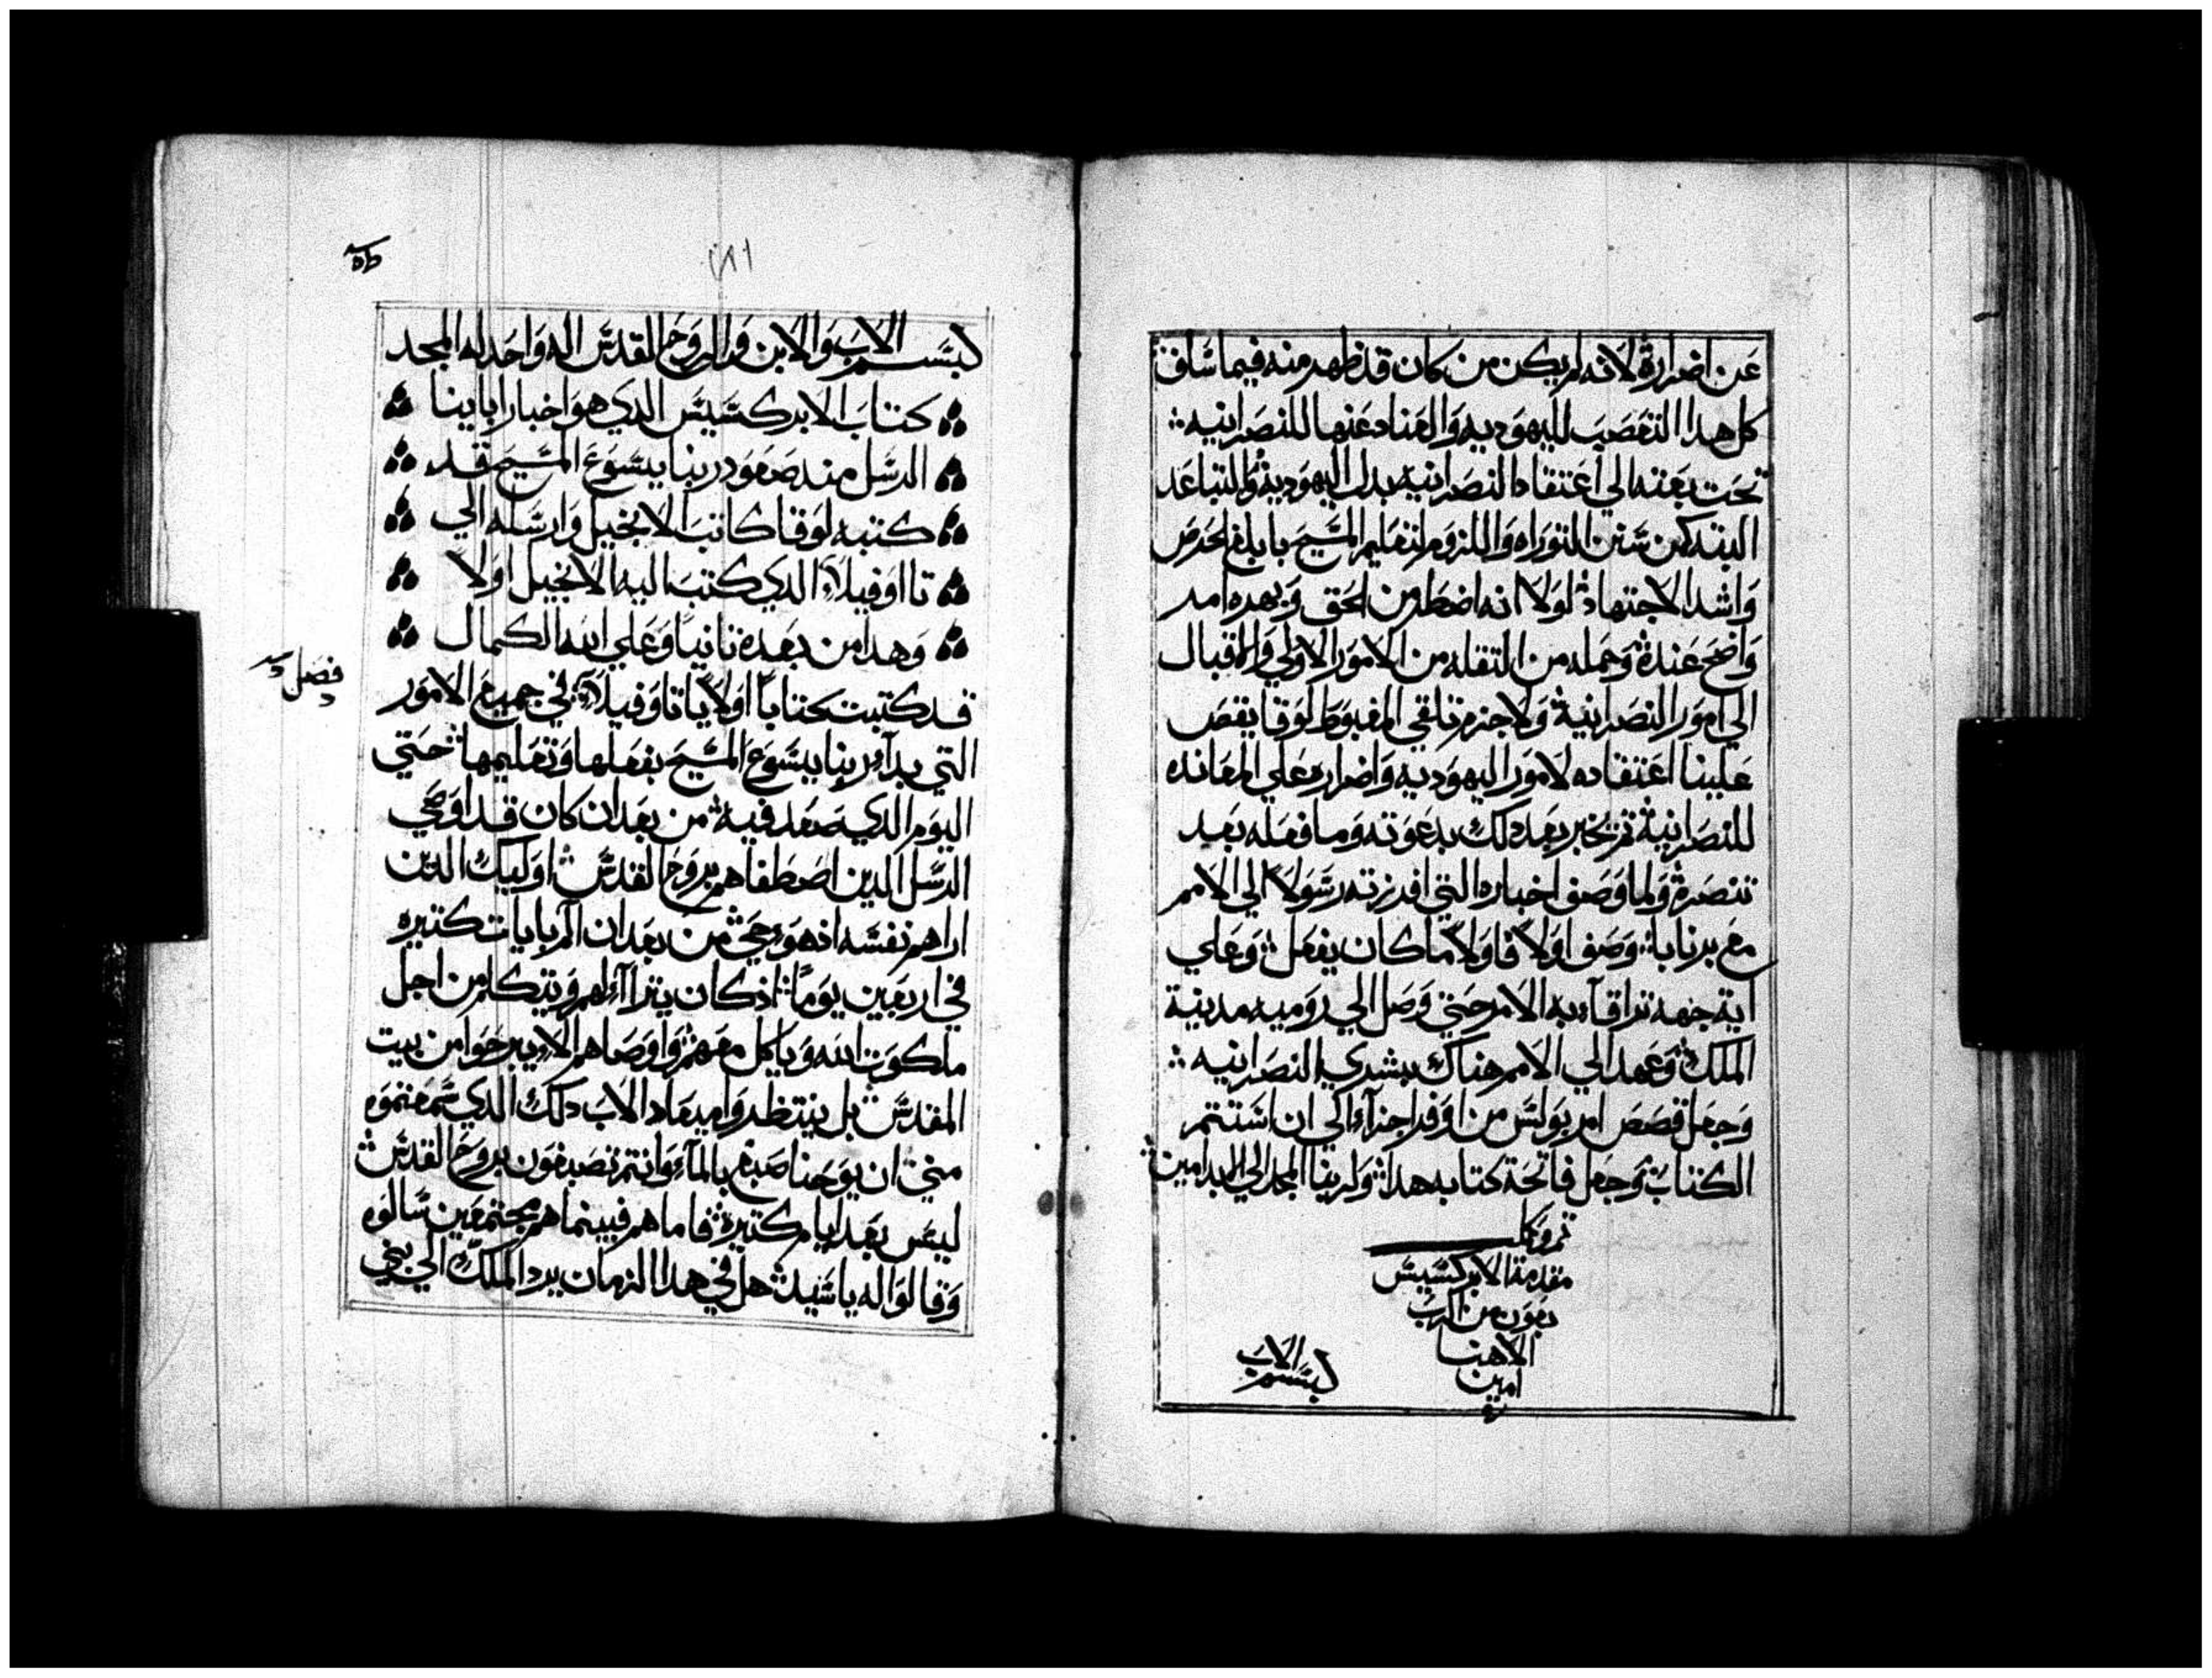 عن اضراره لانه لم يكن من كان قد ظهر منه فيما سلف
كل هدا التعصب لليهوديه والعناد عنها للنصرانيه
تحت بغته الي اعتقاد النصرانيه بدل اليهودية والتباعد
البته من سنن التوراه واللزوم لتعليم المسيح بابلغ الحرص
واشد الاجتهاد لولا انه اضطر من الحق وبهره امر
واضح عنده وحمله من التقله من الامور الاولي والاقبال
الي امور النصرانية ولاجرم تلقي المغبوط لوقا يقص
علينا اعتقاده لامور اليهوديه واضراره علي المعانده
للنصرانية ثم يخبر بعد دلك بدعوته وما فعله بعد
تنصره ولما وصف اخباره التي افرزته رسولا الي الامم
مع برنابا وصف اولا فاولا ما كان يفعل وعلي
اية جهه تراقا به الامر حتي وصل الي روميه مدينة
الملك وعهد الي الامم هناك ببشري النصرانيه
وجعل قصص امر بولس من اوفر اجزآء الي ان استتم
الكتاب وجعل فاتحة كتابه هدا ولربنا المجد الي الابد امين
تم وكمل
مقدمة الابركسيس
بعون من الرب
الاهنا
امين
بسم الاب
بسم الاب والابن والروح القدس اله واحد له المجد
كتاب الابركسيس الدي هو اخبار اباينا
الرسل مند صعود ربنا يسوع المسيح قد
كتبه لوقا كاتب الانجيل وارسله الي
تااوفيلا الدي كتب اليه الانجيل اولا
وهدا من بعده تانيا وعلي الله الكمال
فصل
قد كتبت كتابا اولا يا تاوفيلا في جميع الامور
التي بدآ ربنا يسوع المسيح بفعلها وتعليمها حتي
اليوم الدي صعد فيه من بعد ان كان قد اوصي
الرسل الدين اصطفاهم بروح القدس اوليك الدين
اراهم نفسه اذ هو حي من بعد ان الم بايات كتيره
في اربعين يوما اذ كان يتراآا لهم ويتكلم من اجل
ملكوت الله وياكل معهم واوصاهم الا يبرحوا من بيت
المقدس بل ينتظروا ميعاد الاب دلك الدي سمعتموه
مني ان يوحنا صبغ بالمآء وانتم تصبغون بروح القدس
ليس بعد ايام كتيرة فاما هم فبينما هم مجتمعين سالوه
وقالوا له يا سيد هل في هدا الزمان يرد الملك الي بني